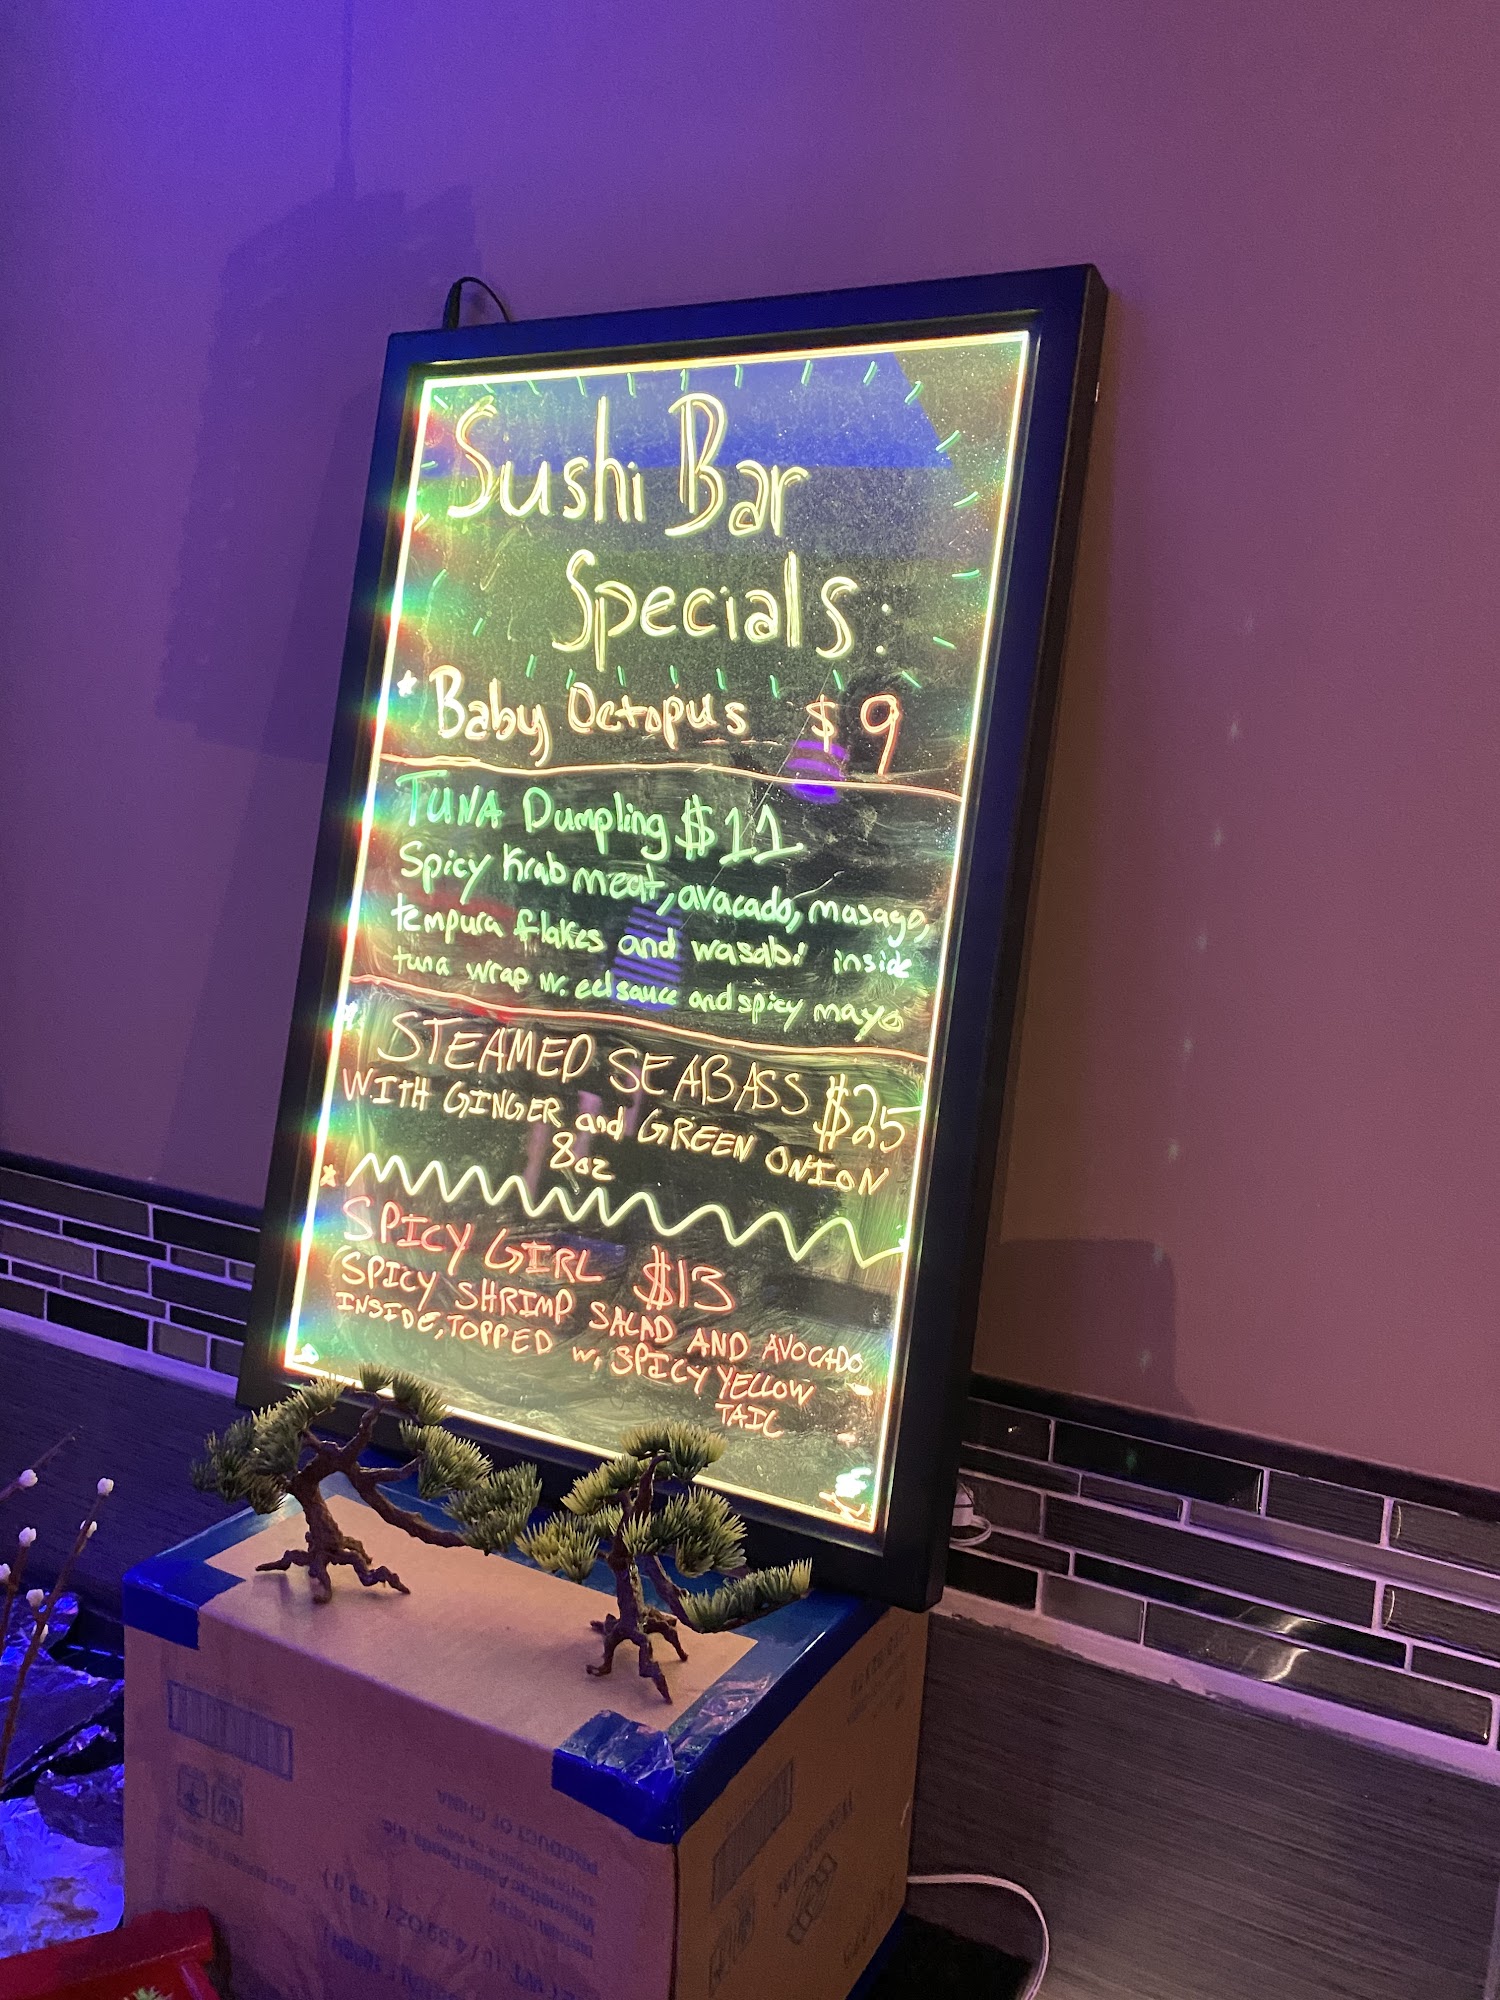 Sushi Bar
Specials:
* Baby Octopus $9
TUNA Dumpling $11
Spicy Krab meat, avacado, masago,
tempura flakes and wasabi inside
tuna wrap w. eel sauce and spicy mayo
STEAMED SEABASS $25
WITH GINGER and GREEN ONION
8oz
* SPICY GIRL $13
SPICY SHRIMP SALAD AND AVOCADO
INSIDE, TOPPED w, SPICY YELLOW
TAIL
PRODUCT OF CHINA